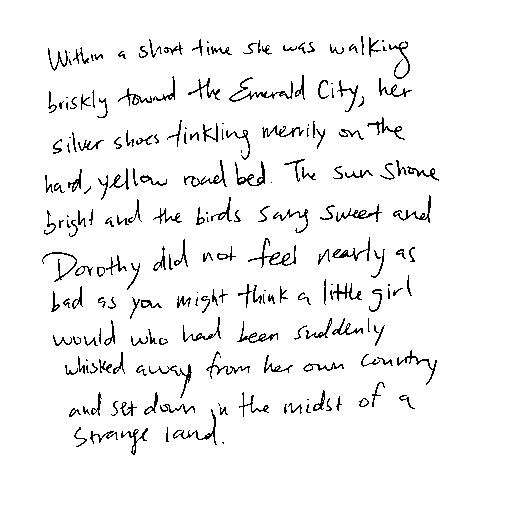 Within a short time she was walking
briskly toward the Emerald City, her
silver shoes tinkling merrily on the
hard, yellow road bed. The sun shone
bright and the birds sang sweet and
Dorothy did not feel nearly as
bad as you might think a little girl
would who had been suddenly
whisked away from her own country
and set down in the midst of a
strange land.